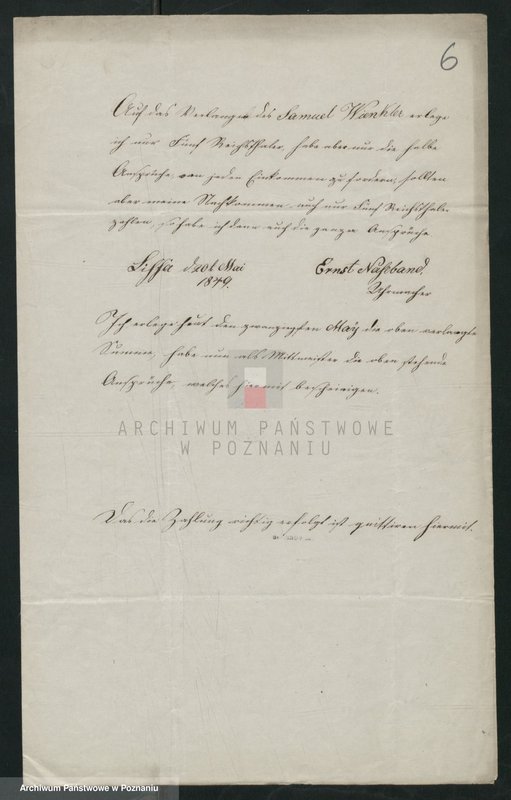 6
Auf das Verlangen des Samuel Winkler erlege
ich nur Fünf Reichsthaler, habe aber nur die halbe
Ansprüche, von jeden Einkommen zu fordern, sollten
aber meine Nachkommen auch nur Fünf Reichsthaler
zahlen, so habe ich denn auch die ganzen Ansprüche
Lissa d 20t Mai Ernst Naßband.
1849. Uhrmacher
Ich erlege heut den zwanzigsten May die oben verlangte
Summe, habe nun als Mittmeister die oben stehende
Ansprüche, welches hiermit bescheinigen.
ARCHIWUM PAŃSTWOWE
W POZNANIU
Das die Zahlung richtig erfolgt ist quittiren hiermit.
Archiwum Państwowe w Poznaniu